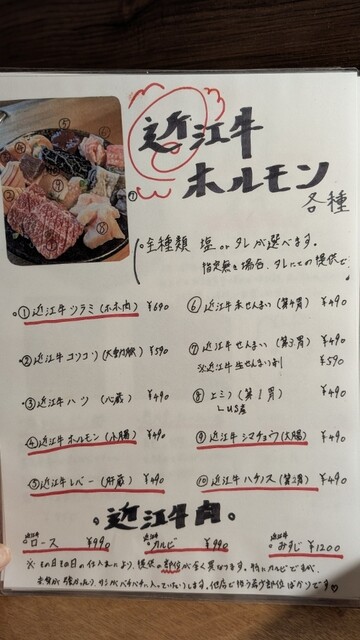 近江牛
ホルモン
各種
全種類 塩 or タレが選べます。
指定無い場合、タレにての提供で
① 近江牛 ツラミ (ホホ肉) ¥690
② 近江牛 コリコリ (大動脈) ¥590
③ 近江牛 ハツ (心臓) ¥490
④ 近江牛 ホルモン (小腸) ¥490
⑤ 近江牛 レバー (肝臓) ¥490
⑥ 近江牛 赤せんまい (第4胃) ¥490
⑦ 近江牛 せんまい (第3胃) ¥490
※近江牛 生せんまい刺 ¥590
⑧ ミノ (第1胃) ¥490
US産
⑨ 近江牛 シマチョウ (大腸) ¥490
⑩ 近江牛 ハチノス (第2胃) ¥490
近江牛肉
近江牛 ロース ¥990
近江牛 カルビ ¥990
近江牛 みすじ ¥1200
※ その日その日の仕入れにより、提供の部位が多く異なります。特にカルビですが、
サシがバチバチに入っていたりします。他店で扱う希少部位ばかりです